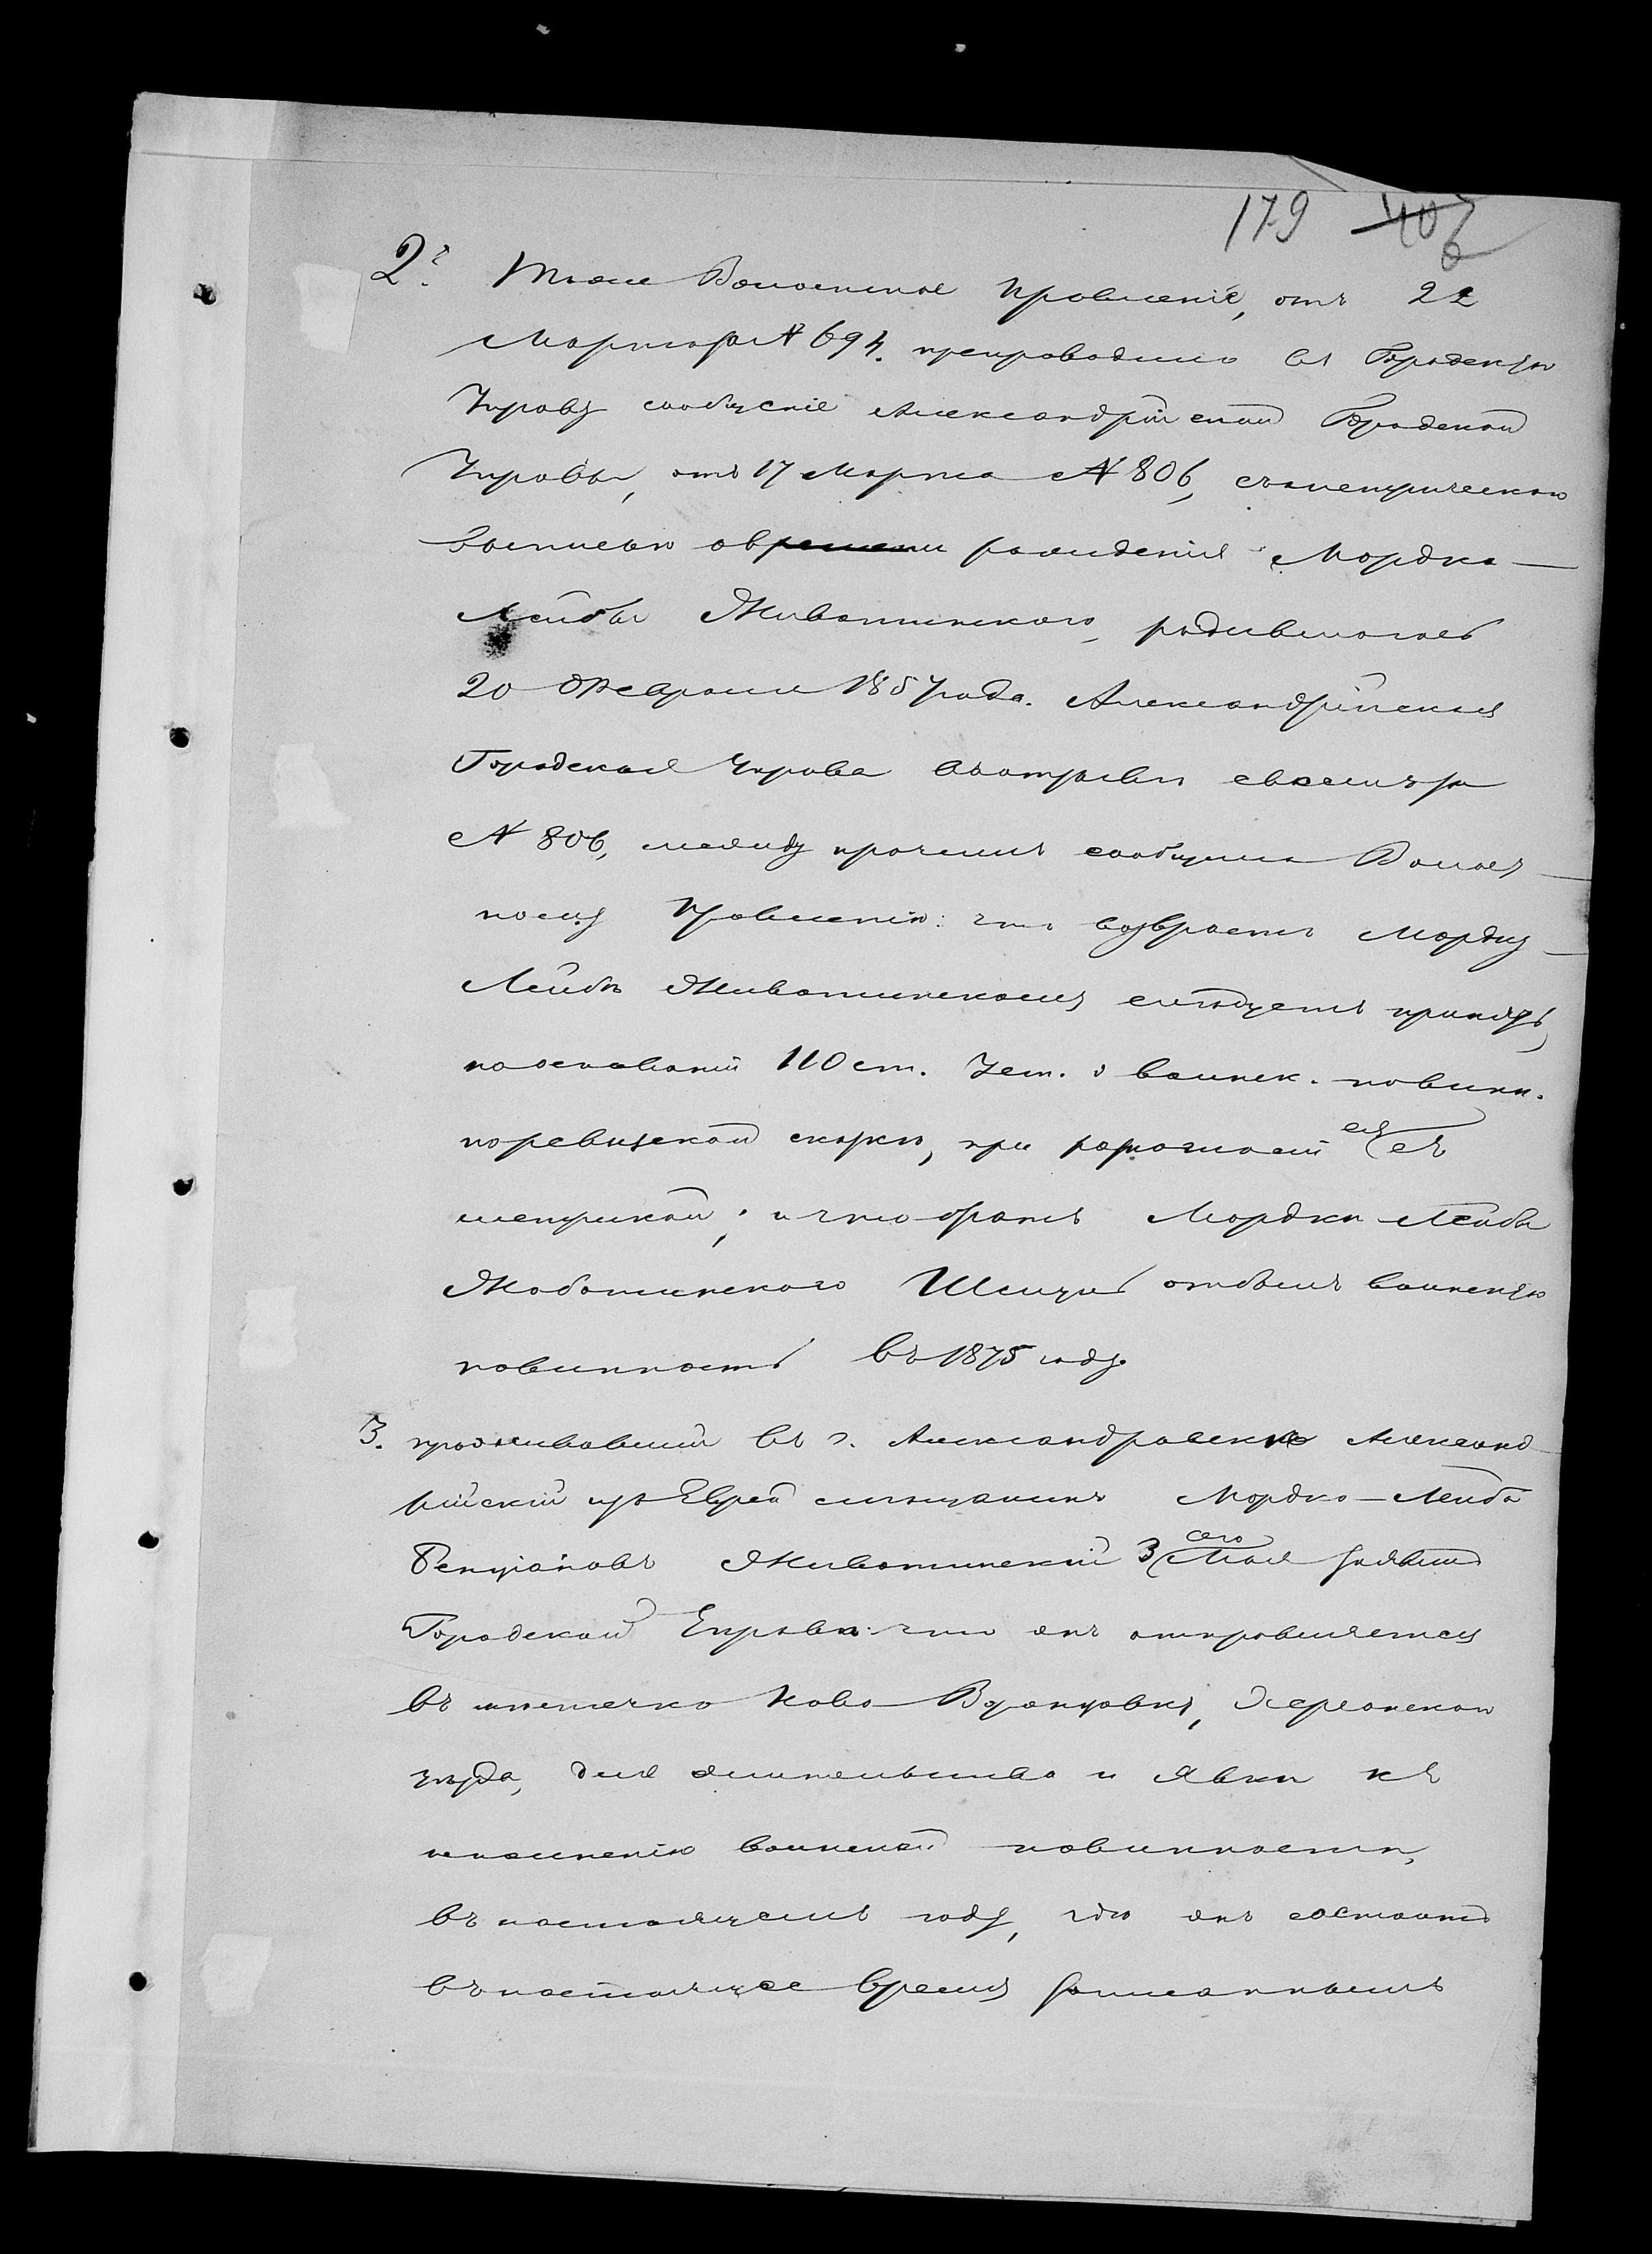 179 406
2. Тоже Волостное Правленіе, отъ 22
Марта за № 694. препроводило въ Городскую
Управу сообщеніе Александрійской Городской
Управы, отъ 17 Марта № 806, съ метрическою
выписью о времени рожденія Мордко-
Лейбы Животинскаго, родившагося
20 Февраля 1857 года. Александрійская
Городская Управа въ отзывѣ своемъ за
№ 806, между прочимъ сообщила Волост-
ному Правленію: что возврастъ Мордку-
Лейбѣ Животинскому слѣдуетъ принять,
на основаніи 110 ст. Уст. о воинск. повинн.
по ревизской сказкѣ, при разногласіи ея съ
метрикой; и что братъ Мордки-Лейбы
Жаботинскаго отбылъ воинскую
повинность въ 1875 году.
3. проживавшій въ г. Александровскѣ Александ-
рійскій изъ Евреи мѣщанинъ Мордко-Лейба
Животинскій 3 сего Мая заявилъ
Городской Управѣ: что онъ отправляется
въ мѣстечко Ново Воронцовку, Херсонскаго
уѣзда, для жительства и явки къ
исполненію воинской повинности,
въ настоящемъ году, гдѣ онъ состоитъ
въ настоящее время записаннымъ